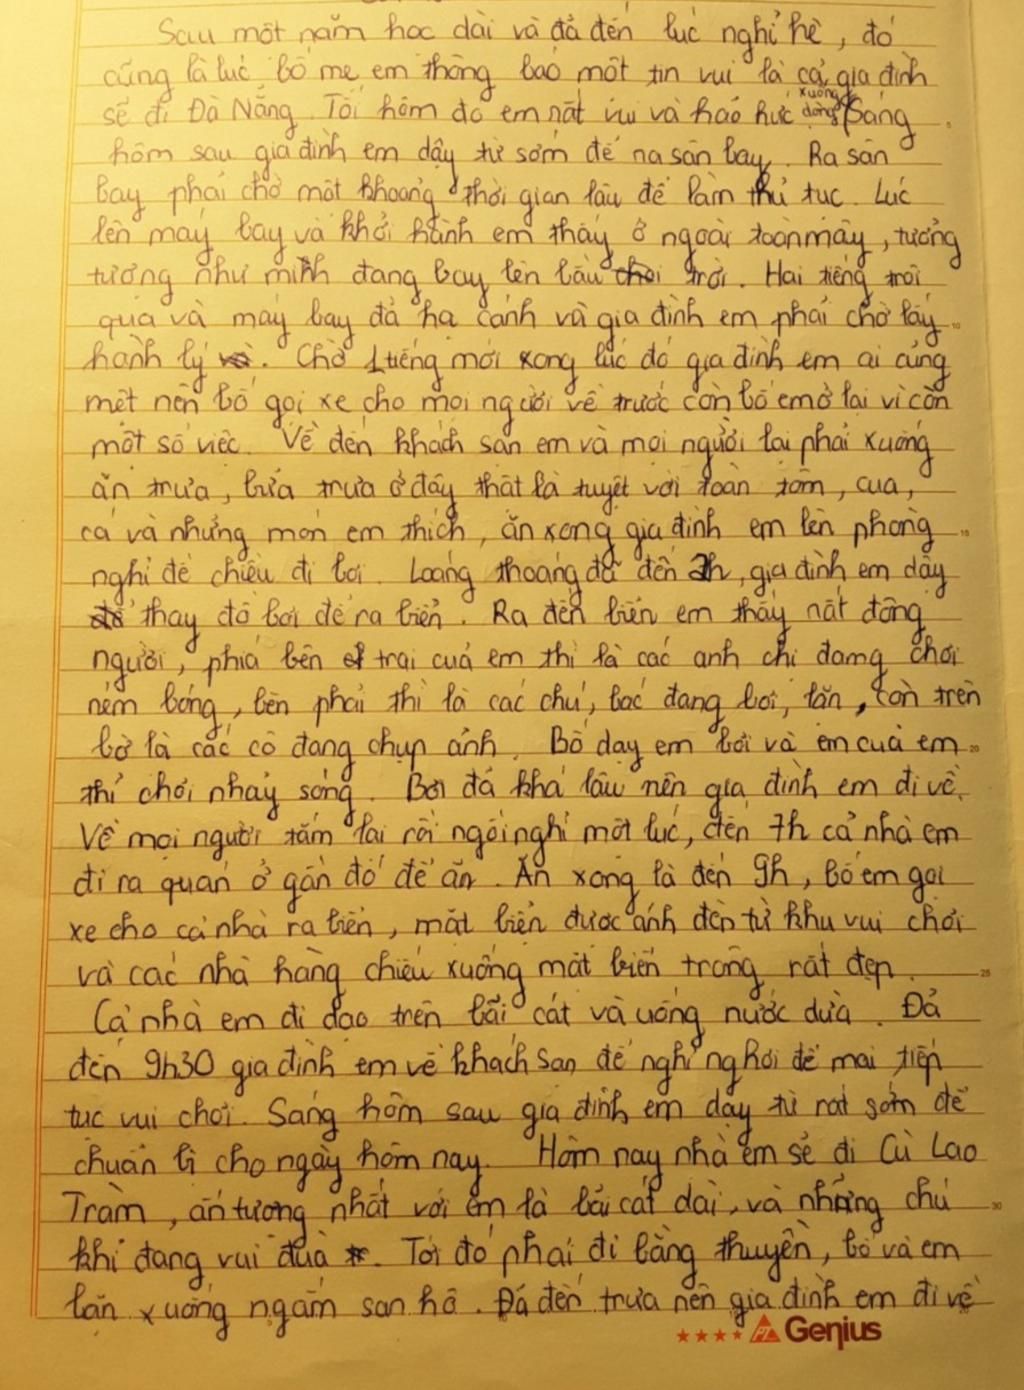 Sau một năm học dài và đả đến lúc nghỉ hè, đó
cũng là lúc bố mẹ em thông báo một tin vui là cả gia đình
sẽ đi Đà Nẵng. Tối hôm đó em nất vui và háo hức xuống dòng Sáng
hôm sau gia đình em dậy từ sớm để na sân bay. Ra sân
bay phải chờ một khoảng thời gian lâu để làm thủ tục. Lúc
lên máy bay và khởi hành em thấy ở ngoài toàn mây, tưởng
tượng như mình đang bay lên bầu trời. Hai tiếng trôi
qua và máy bay đả hạ cánh và gia đình em phải chờ lấy
hành lý. Chờ 1 tiếng mới xong lúc đó gia đình em ai củng
mệt nên bố gọi xe cho mọi người về trước còn bố em ở lại vì còn
một số việc. Về đến khách sạn em và mọi người lại phải xuống
ăn trưa, bửa trưa ở đấy thật là tuyệt vời toàn tôm, cua,
cá và những món em thích, ăn xong gia đình em lên phòng
nghỉ để chiều đi bơi. Loáng thoáng đã đến 2h, gia đình em dậy
thay đồ bơi để ra biển. Ra đến biển em thấy nất đông
người, phía bên trái của em thì là các anh chị đang chơi
ném bóng, bên phải thì là các chú, bác đang bơi, lặn, còn trên
bờ là các cô đang chụp ảnh. Bố dạy em bơi và em của em
thì chơi nhảy sóng. Bơi đá khá lâu nên gia đình em đi về.
Về mọi người tắm lại rồi ngồi nghỉ một lúc, đến 7h cả nhà em
đi ra quán ở gần đó để ăn. Ăn xong là đến 9h, bố em gọi
xe cho cả nhà ra biển, mặt biển được ánh đèn từ khu vui chơi
và các nhà hàng chiếu xuống mặt biển trông rất đẹp.
Cả nhà em đi dạo trên bãi cát và uống nước dừa. Đả
đến 9h30 gia đình em về khách sạn để nghỉ nghơi để mai tiếp
tục vui chơi. Sáng hôm sau gia đình em dậy từ rất sớm để
chuẩn bị cho ngày hôm nay. Hôm nay nhà em sẻ đi Cù Lao
Tràm, ấn tượng nhất với em là bãi cát dài, và những chú
khỉ đang vui đùa. Tới đó phải đi bằng thuyền, bố và em
lặn xuống ngắm san hô. Đá đến trưa nên gia đình em đi về
PTL Genius